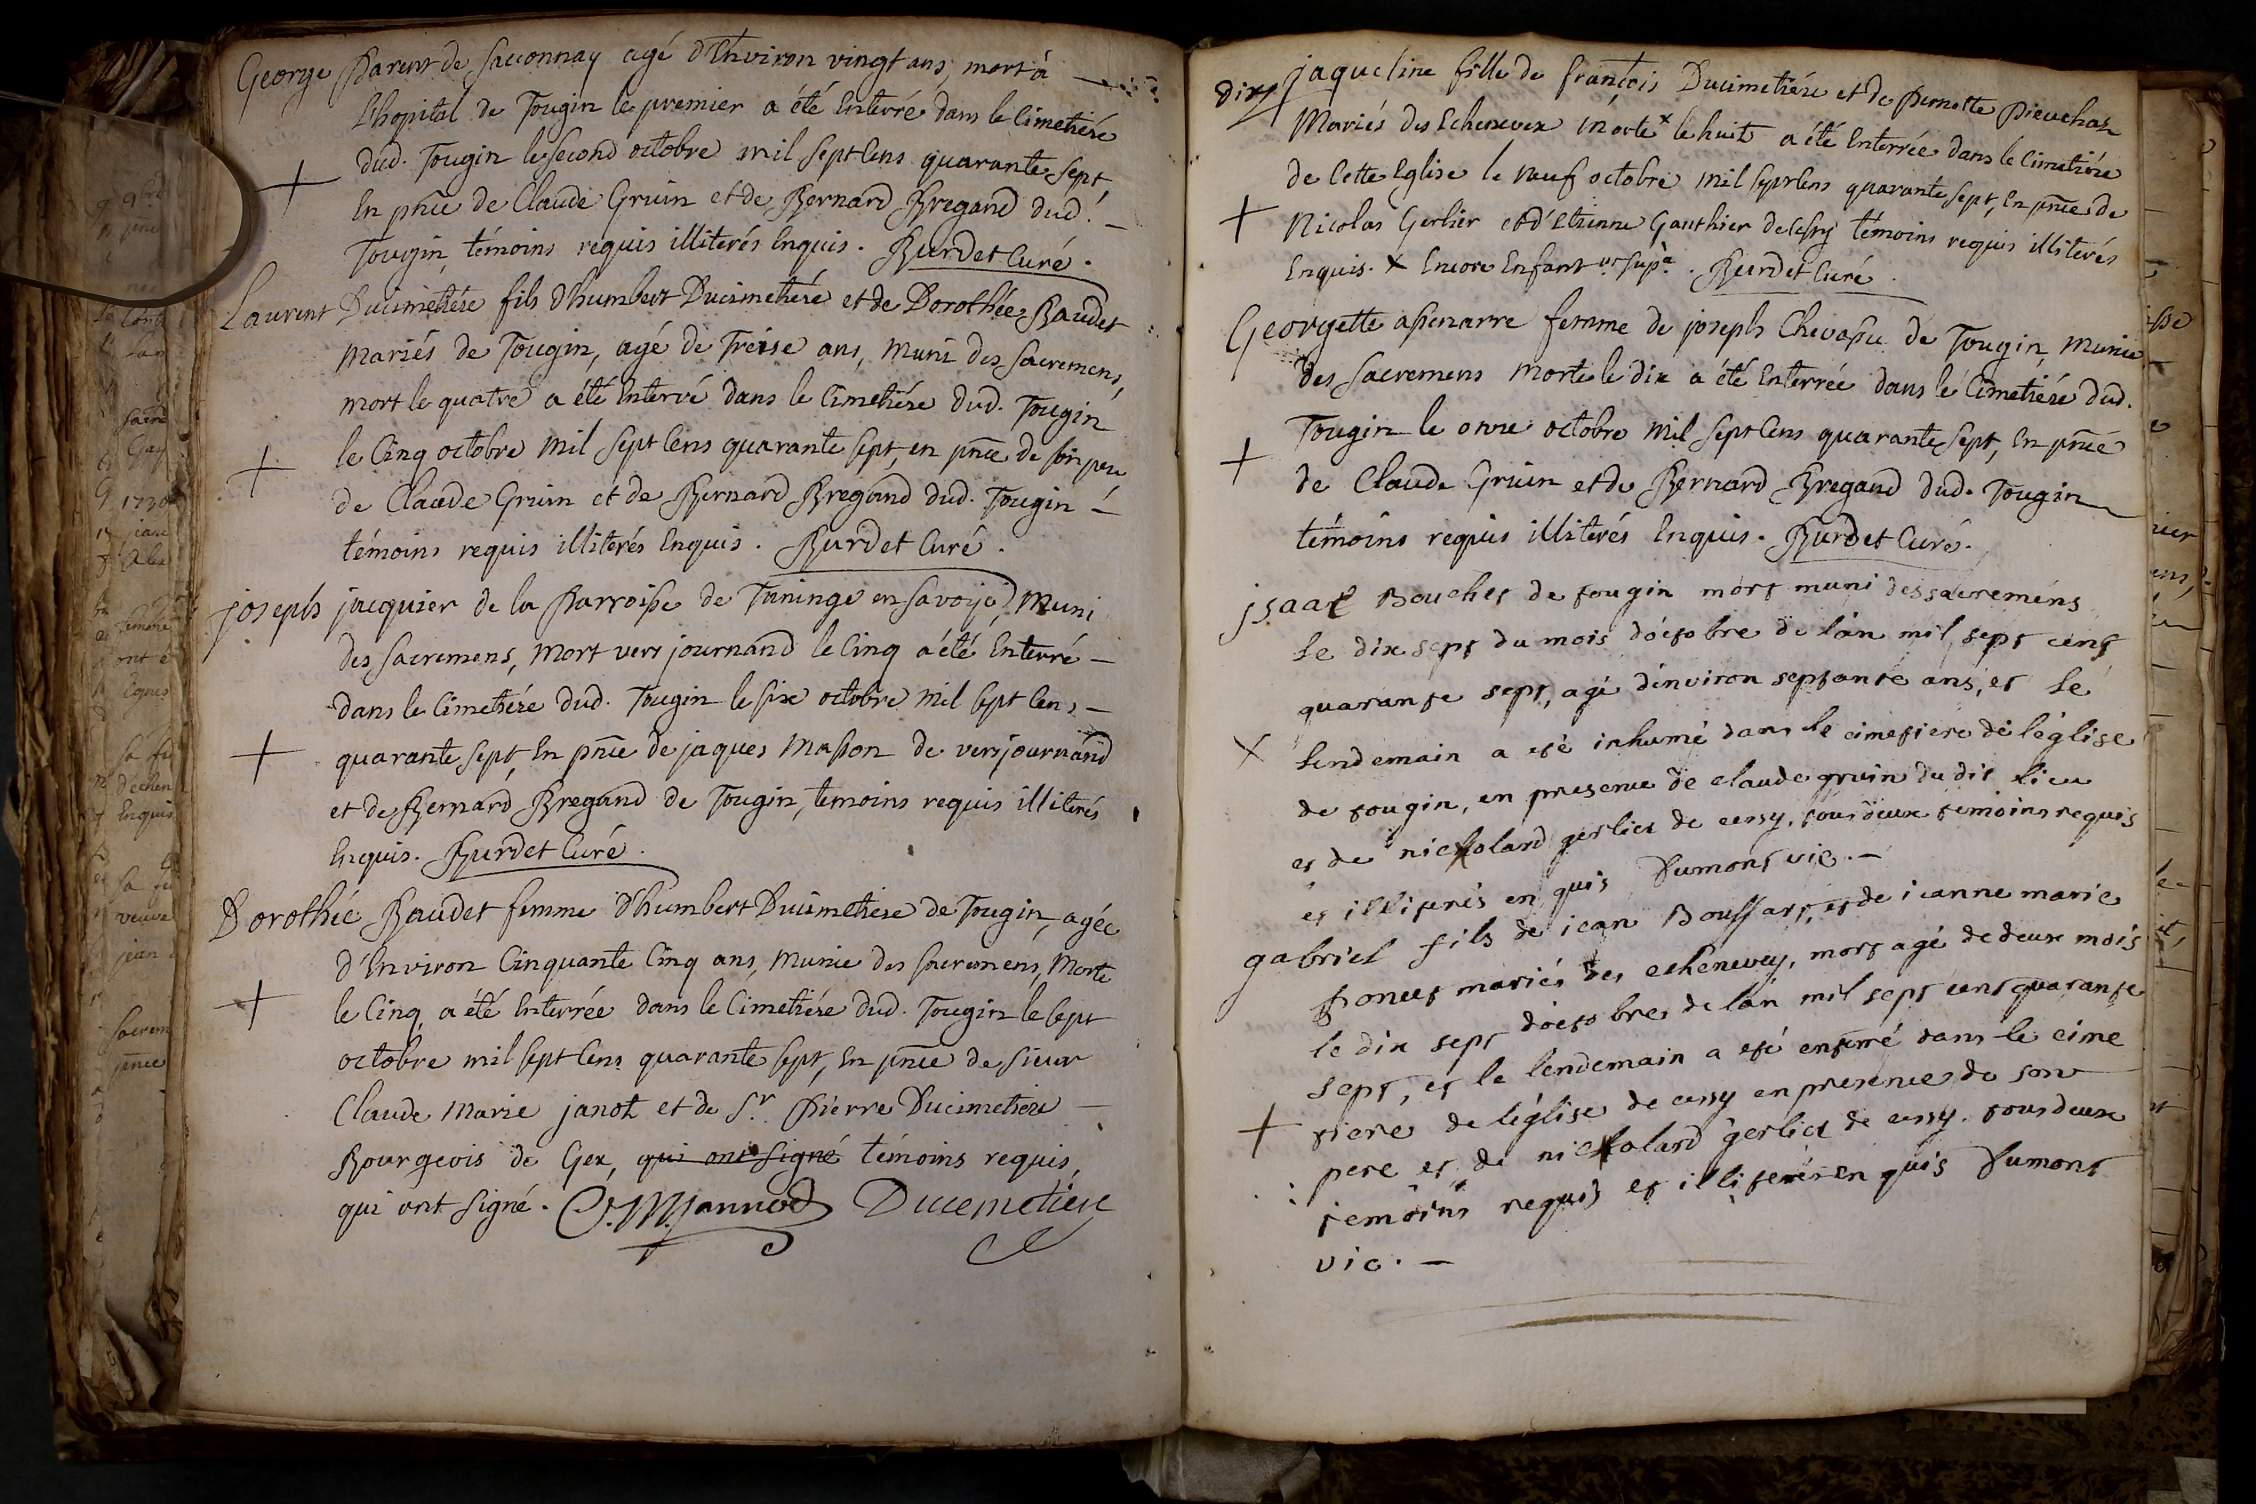 George Parent de Sacconnay agé d'Environ vingt ans, mort à
L'hopital de Tougin le premier a été Enterré dans le Cimetiére
dud. Tougin le second octobre mil sept Cens quarante sept,
En pñce de Claude Gruin et de Bernard Bregand dud.
Tougin, témoins requis illiterés Enquis. Burdet Curé.
Laurent Ducimetiére fils d'humbert Ducimetiére et de Dorothée Baudet
mariés de Tougin, agé de Treise ans, muni des sacremens,
mort le quatre a été Enterré dans le Cimetiére dud. Tougin
le Cinq octobre mil sept Cens quarante sept, en pñce de son pere
de Claude Gruin et de Bernard Bregand dud. Tougin
témoins requis illiterés Enquis. Burdet Curé.
joseph jacquier de la Parroisse de Taninge en savoye, muni
des sacremens, mort vers journand le Cinq a été Enterré
dans le Cimetiére dud. Tougin le six octobre mil sept Cens
quarante sept, En pñce de jaques Masson de vers journand
et de Bernard Bregand de Tougin, temoins requis illiterés
Enquis. Burdet Curé.
Dorothée Baudet femme d'humbert Ducimetiere de Tougin, agée
d'Environ Cinquante Cinq ans, munie des sacremens, Morte
le Cinq a été Enterrée dans le Cimetiére dud. Tougin le sept
octobre mil sept Cens quarante sept, En pñce de sieur
Claude Marie janot et de Sr. Pierre Ducimetiere
Bourgeois de Gex, qui ont signé témoins requis,
qui ont signé. C.M. Jannod Ducemetiere
jaqueline fille de françois Ducimetiére et de Pernette
Mariés des Echenevex morte x le huit a été Enterrée dans le Cimetiére
de Cette Eglise le neuf octobre mil sept Cens quarante sept, En pñce de
Nicolas Gerlier et d'Etienne Gauthier de Cessy témoins requis illiterés
Enquis. x Encore Enfant ut supª. Burdet Curé.
Georgette femme de joseph Chevassu de Tougin, munie
des sacremens morte le dix a été Enterrée dans le Cimetiére dud.
Tougin le onze octobre mil sept Cens quarante sept, En pñce
de Claude Gruin et de Bernard Bregand dud. Tougin
témoins requis illiterés Enquis. Burdet Curé.
jsaac Bouchet de tougin mort muni des sacremens
le dix sept du mois d'octobre de l'an mil sept cent
quarante sept, agé d'environ septante ans, et le
lendemain a eté inhumé dans le cimetiere de l'église
de tougin, en presence de claude gruin du dit lieu
et de nickolard gerlier de cessy, tous deux temoins requis
et illiterés en quis Dumont vic.
gabriel fils de jean Bouffart, et de jeanne marie
ponces mariés des echenevey, mort agé de deux mois
le dix sept d'octobre de l'an mil sept cent quarante
sept, et le lendemain a eté enterré dans le cime
tiere de l'église de cessy en presence de son
pere et de nickolard gerlier de cessy. tous deux
temoins requis et illiterés en quis Dumont
vic.